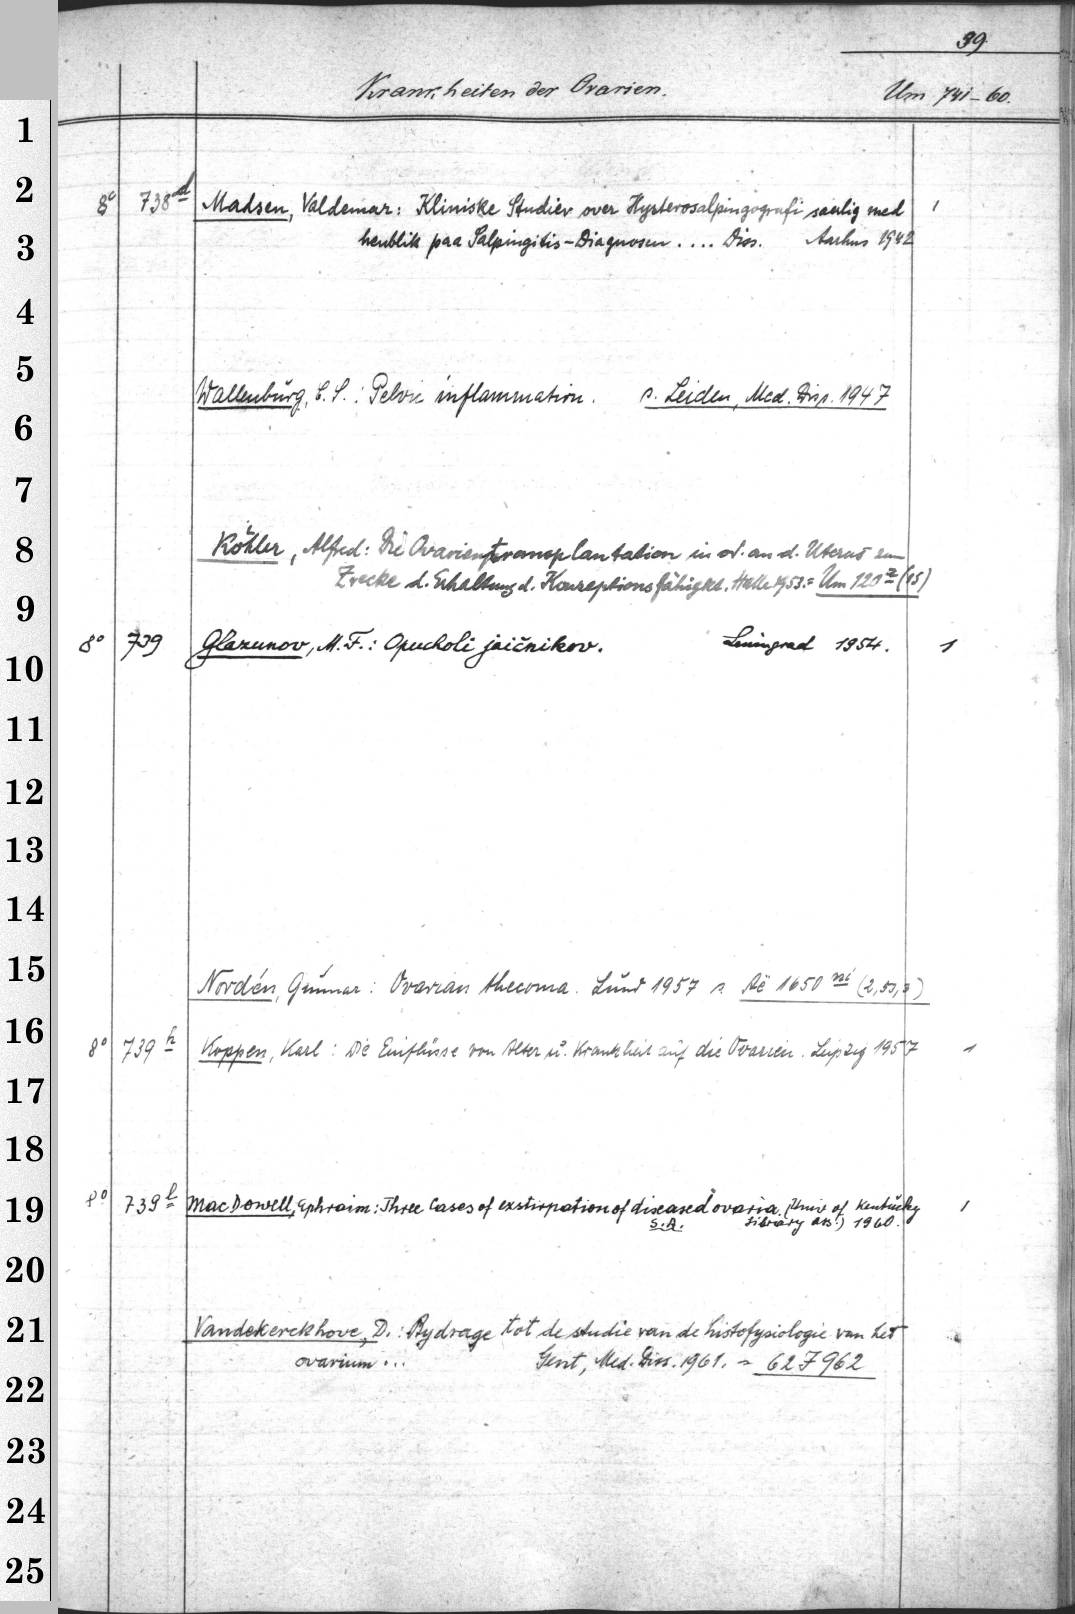 39
Krankheiten der Ovarien. Um 741-60.
1
2
8° 738 d Madsen, Valdemar: Kliniske Studier over Hysterosalpingografi særlig med 1
3
henblik paa Salpingitis-Diagnosen .... Diss. Aarhus 1942
4
5
Wallenburg, C. S.: Pelvic inflammation. s. Leiden, Med. Diss. 1947
6
7
8
Köhler, Alfred: Die Ovarientransplantation in od. an d. Uterus zum
Zwecke d. Erhaltung d. Konzeptionsfähigkeit. Halle 1953. = Um 120 z (15)
9
8° 739 Glazunov, M. F.: Opucholi jaičnikov. Leningrad 1954. 1
10
11
12
13
14
15
Nordén, Gunnar: Ovarian thecoma. Lund 1957 s. Aë 1650 (2,53,3)
16
8° 739 h Koppen, Karl: Die Einflüsse von Alter u. Krankheit auf die Ovarien. Leipzig 1957 1
17
18
19
8° 739 l MacDowell, Ephraim: Three Cases of exstirpation of diseased ovaria. (Univ of Kentucky 1
S.A. Library ) 1960.
20
21
Vandekerckhove, D.: Bydrage tot de studie van de histofysiologie van het
ovarium... Gent, Med. Diss. 1961. = 627962
22
23
24
25